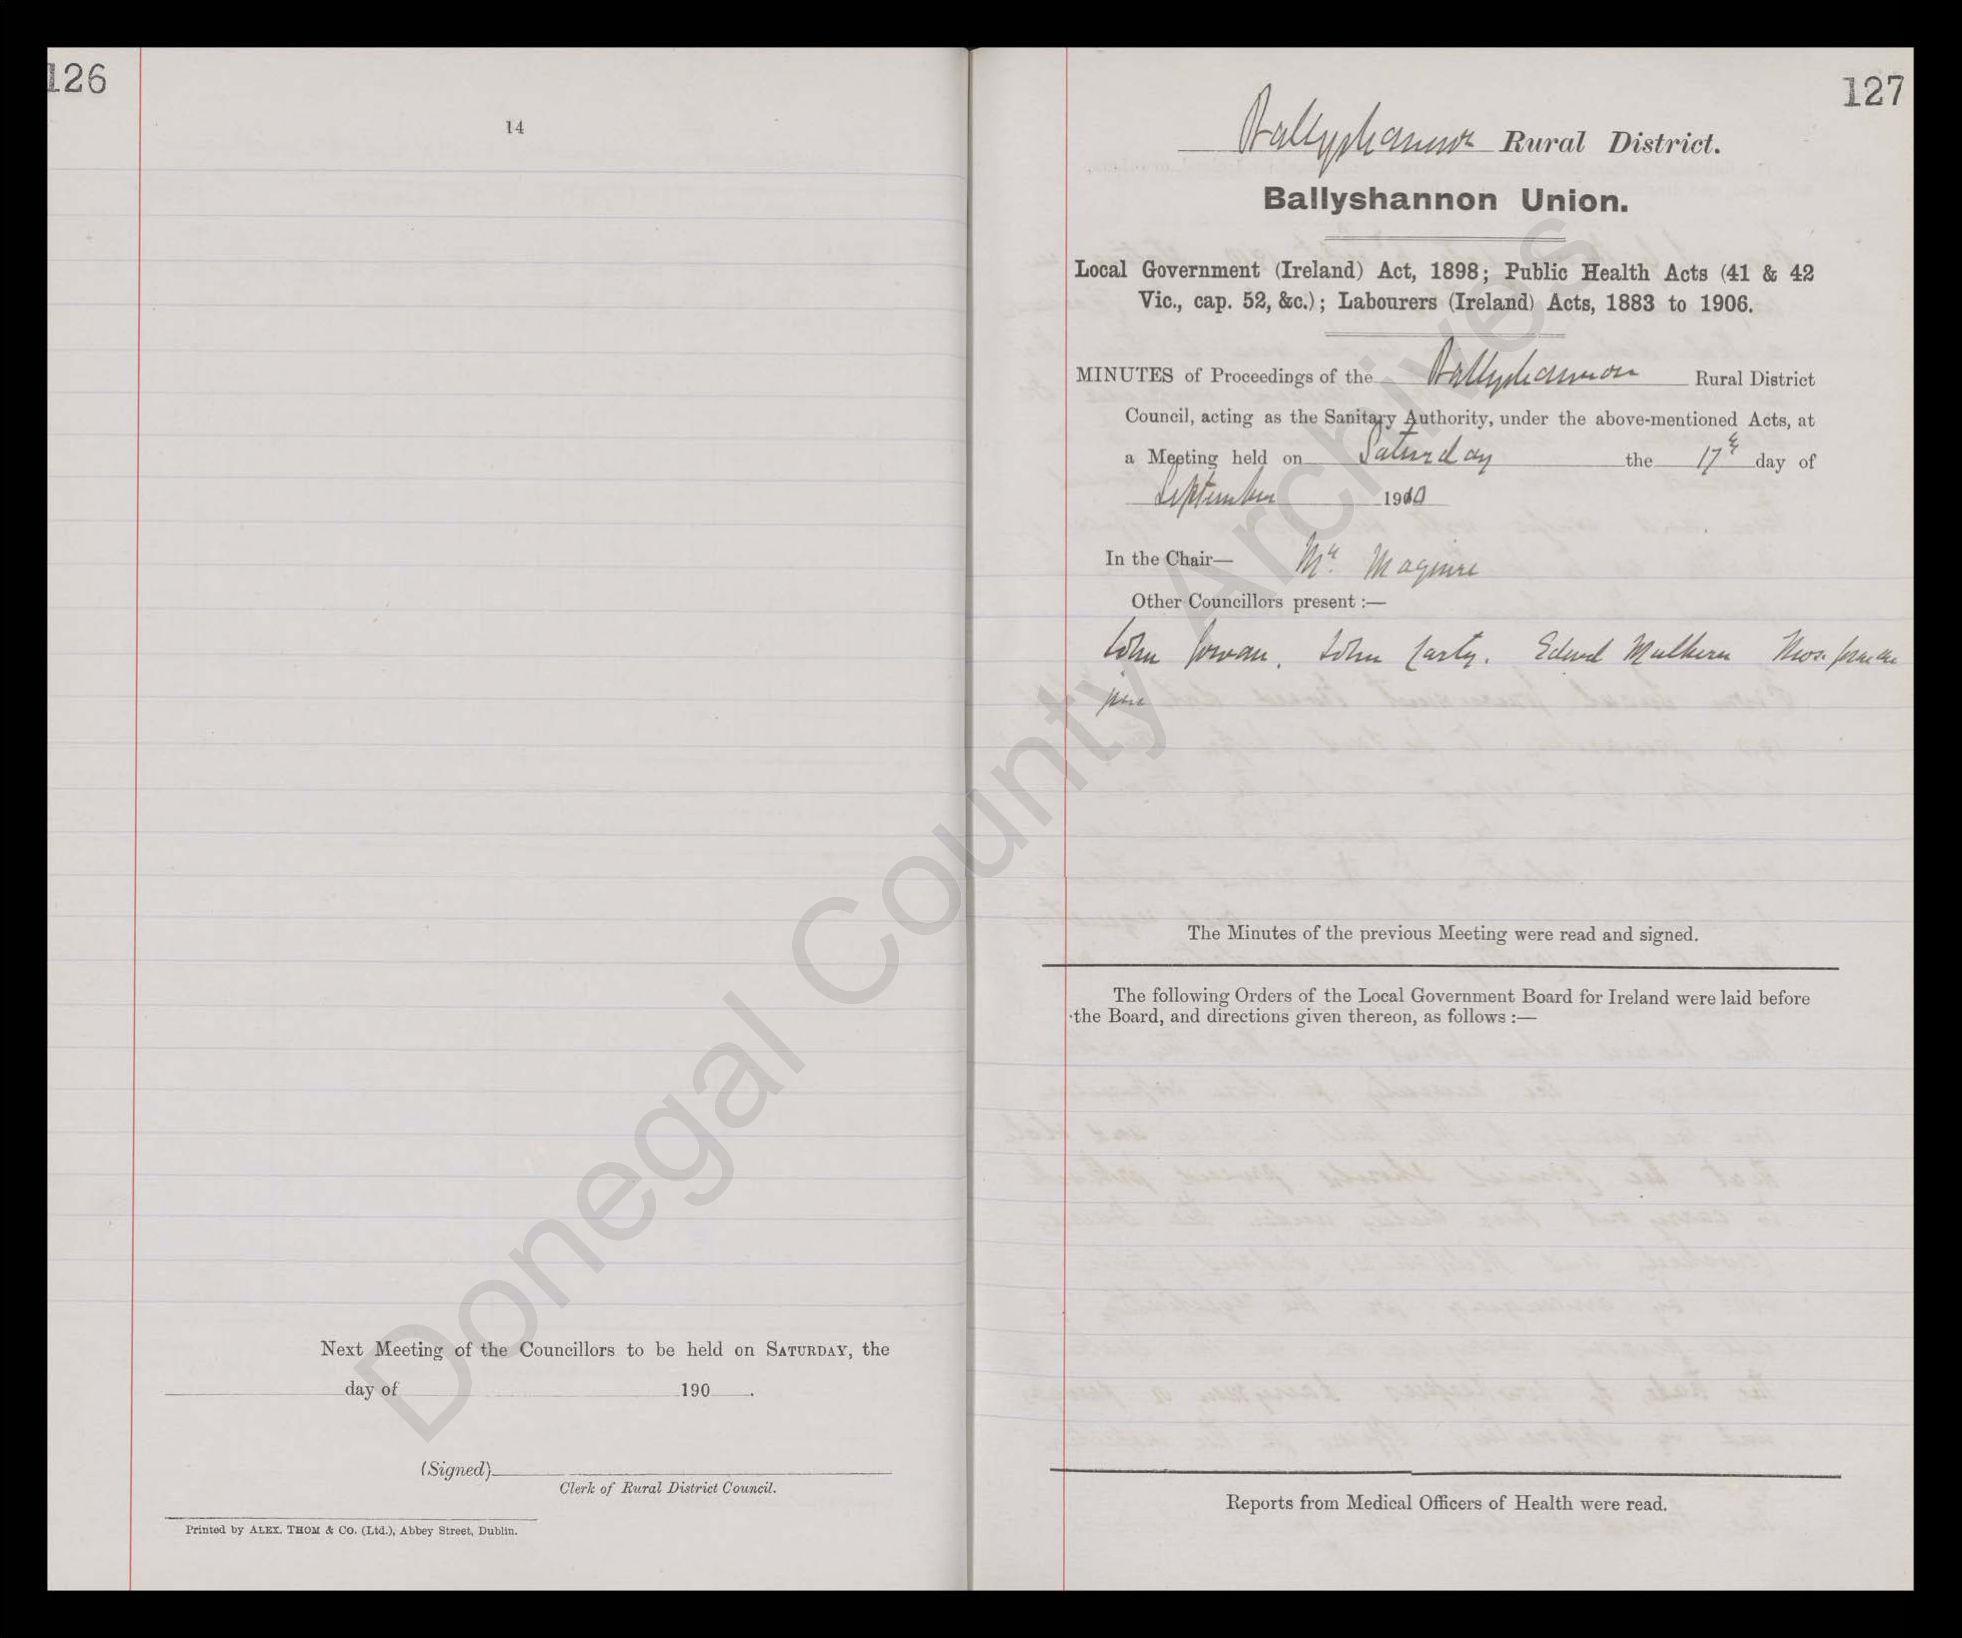 126
14
Next Meeting of the Councillors to be held on SATURDAY, the
day of 190 .
(Signed)
Clerk of Rural District Council.
Printed by ALEX. THOM & CO. (Ltd.), Abbey Street, Dublin.
127
Ballyshannon Rural District.
Ballyshannon Union.
Local Government (Ireland) Act, 1898; Public Health Acts (41 & 42
Vic., cap. 52, &c.); Labourers (Ireland) Acts, 1883 to 1906.
MINUTES of Proceedings of the Ballyshannon Rural District
Council, acting as the Sanitary Authority, under the above-mentioned Acts, at
a Meeting held on Saturday the 17th day of
September 1910
In the Chair— Mr. Maguire
Other Councillors present :—
John Gowan. John Carty. Edwd Mulhern Thos.
junr
The Minutes of the previous Meeting were read and signed.
The following Orders of the Local Government Board for Ireland were laid before
the Board, and directions given thereon, as follows :—
Reports from Medical Officers of Health were read.
Donegal County Archives